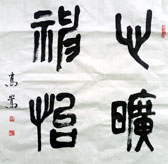 心曠
神怡